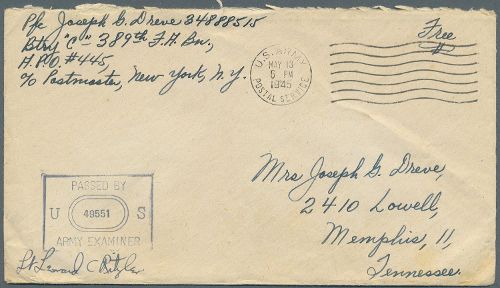 Pfc Joseph G. Dreve 34888515
Btry "C" 389th F.A. Bn.,
A.P.O. #445,
c/o Postmaster, New York, N.Y.
U.S. ARMY
MAY 13
5 PM
1945
POSTAL SERVICE
Free
Mrs Joseph G. Dreve,
2410 Lowell,
Memphis, 11,
Tennessee.
PASSED BY
U 49551 S
ARMY EXAMINER
Lt Leonard C